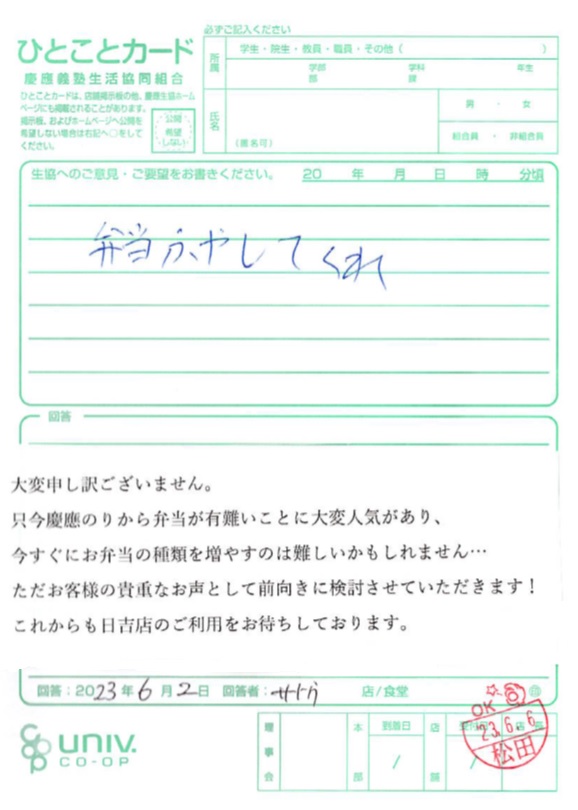 必ずご記入ください
ひとことカード
慶應義塾生活協同組合
ひとことカードは、店舗掲示板の他、慶應生協ホーム
ページにも掲載されることがあります。
掲示板、およびホームページへ公開を
希望しない場合は右記へ○をして
ください。
公開
希望
しない
所属
学生・院生・教員・職員・その他（ ）
学部 学科 年生
部 課
氏名
（匿名可）
男 ・ 女
組合員 ・ 非組合員
生協へのご意見・ご要望をお書きください。 20 年 月 日 時 分頃
弁当ふやしてくれ
回答
大変申し訳ございません。
只今慶應のりから弁当が有難いことに大変人気があり、
今すぐにお弁当の種類を増やすのは難しいかもしれません…
ただお客様の貴重なお声として前向きに検討させていただきます！
これからも日吉店のご利用をお待ちしております。
回答：2023年6月2日 回答者：サトウ 店/食堂
UNIV.
CO-OP
理事会
本部
到着日
/
店舗
/
OK
23.6.6
松田